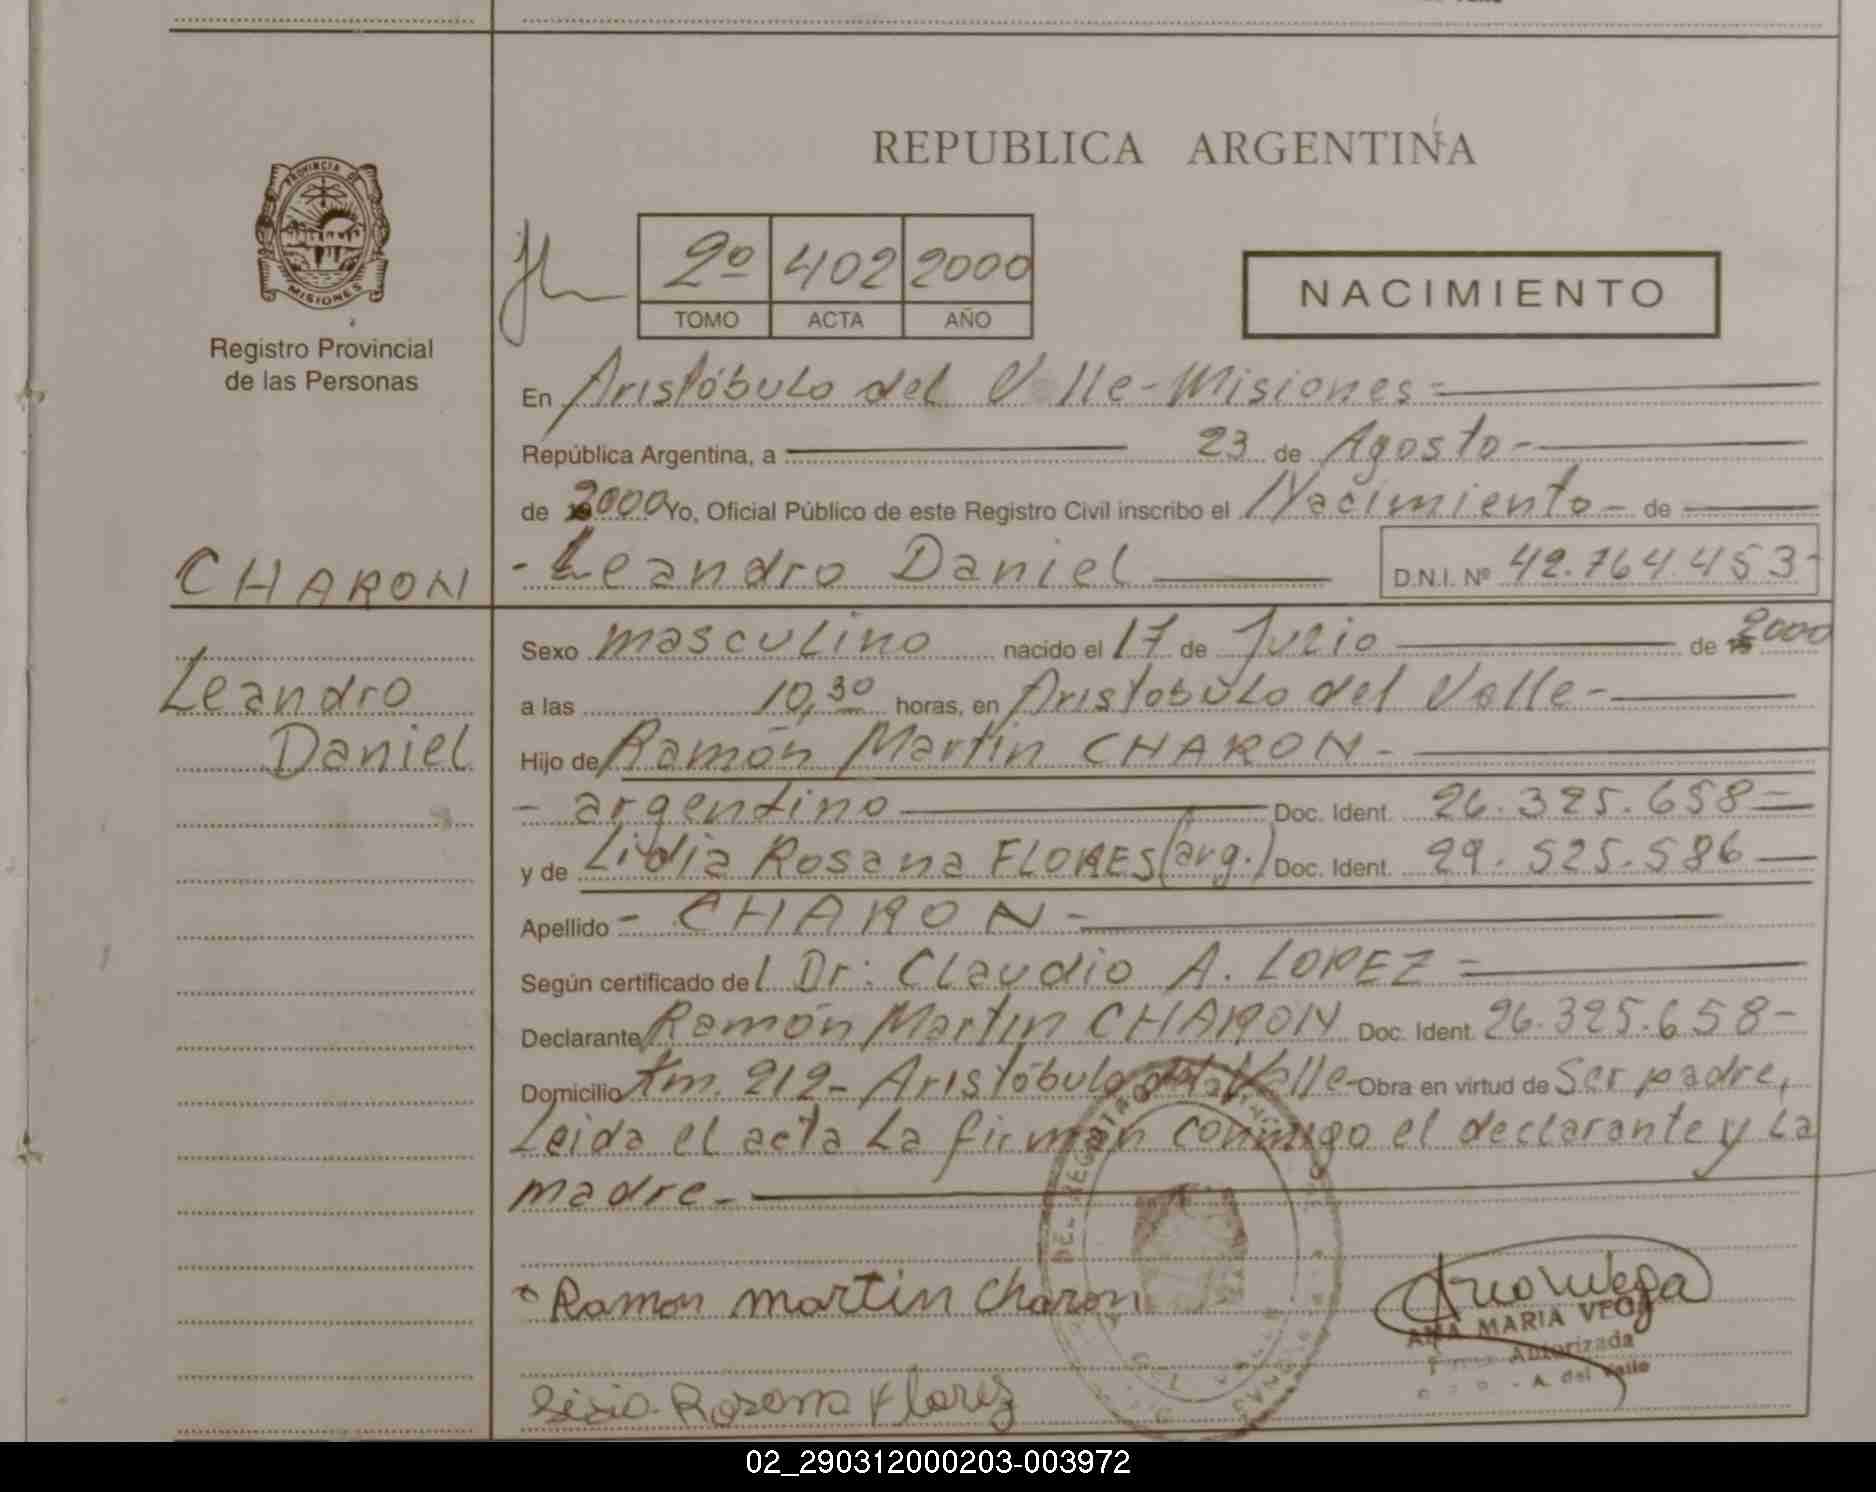 REPUBLICA ARGENTINA
PROVINCIA DE
MISIONES
Registro Provincial
de las Personas
2º 402 2000
TOMO ACTA AÑO
NACIMIENTO
En Aristóbulo del Valle - Misiones =
República Argentina, a 23 de Agosto -
de 2000 Yo, Oficial Público de este Registro Civil inscribo el Nacimiento - de
CHARON - Leandro Daniel D.N.I. Nº 42.764.453-
Sexo masculino nacido el 17 de Julio de 2000
Leandro
a las 10,30 horas, en Aristobulo del Valle -
Daniel
Hijo de Ramón Martin CHARON -
- argentino Doc. Ident. 26.325.658 -
y de Lidia Rosana FLORES (arg.) Doc. Ident. 29.525.586
Apellido - CHARON -
Según certificado del Dr: Claudio A. LOPEZ =
Declarante Ramón Martin CHARON Doc. Ident. 26.325.658-
Domicilio Km. 212 - Aristóbulo del Valle - Obra en virtud de Ser padre,
Leida el acta la firman conmigo el declarante y la
madre -
Ramon martin charon
ANA MARIA VEGA
Autorizada
A. del Valle
Rosana Florez
02_290312000203-003972